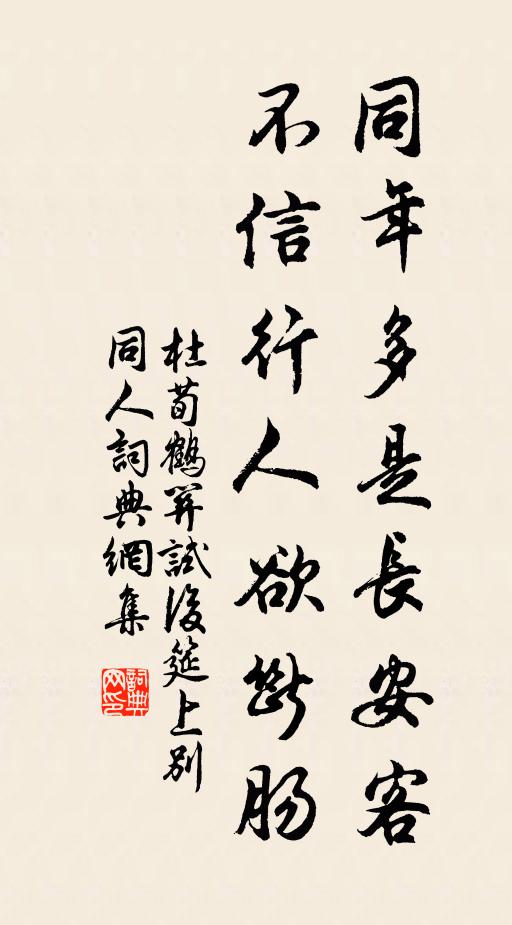 同年多是長安客
不信行人欲斷腸
杜荀鶴 罷試後筵上別
同人詞典網集
詞典网印